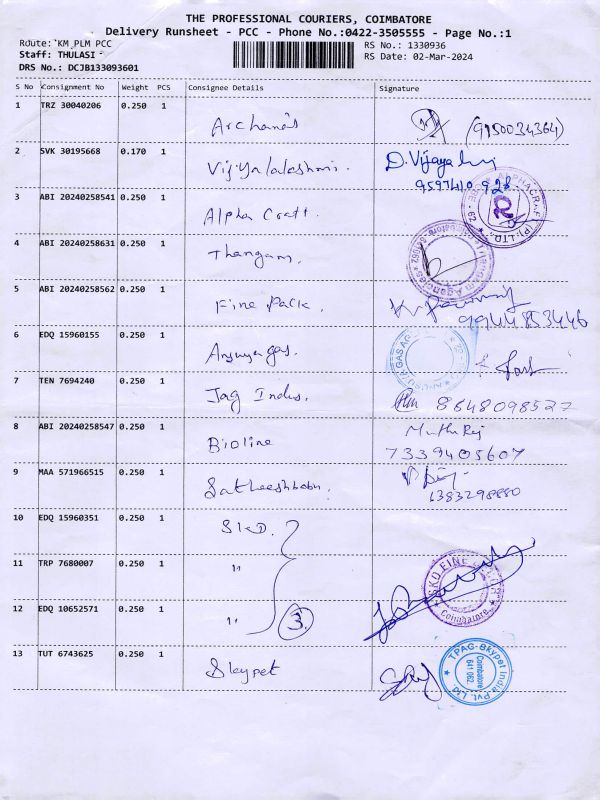 THE PROFESSIONAL COURIERS, COIMBATORE
Delivery Runsheet - PCC - Phone No.:0422-3505555 - Page No.:1
Route: KM PLM PCC
Staff: THULASI
DRS No.: DCJB133093601
RS No.: 1330936
RS Date: 02-Mar-2024
S No Consignment No Weight PCS Consignee Details Signature
1 TRZ 30040206 0.250 1 Archana's (9150034364)
2 SVK 30195668 0.170 1 Vijiyalalashmi. D. Vijaya
9597410 928
3 ABI 20240258541 0.250 1 Alpha Craft.
4 ABI 20240258631 0.250 1 Thangam.
5 ABI 20240258562 0.250 1 Fine Pack.
9944853446
6 EDQ 15960155 0.250 1 gas.
7 TEN 7694240 0.250 1 Jag Indus. 8648098527
8 ABI 20240258547 0.250 1 Bioline Muthu Raj
7339405607
9 MAA 571966515 0.250 1 Satheeshbabu.
6383298880
10 EDQ 15960351 0.250 1 SKD.
11 TRP 7680007 0.250 1 "
12 EDQ 10652571 0.250 1 " 3
SKD FINE
Coimbatore
13 TUT 6743625 0.250 1 Skypet
TPAC Skypet India Pvt. Ltd.
Coimbatore
641 062.